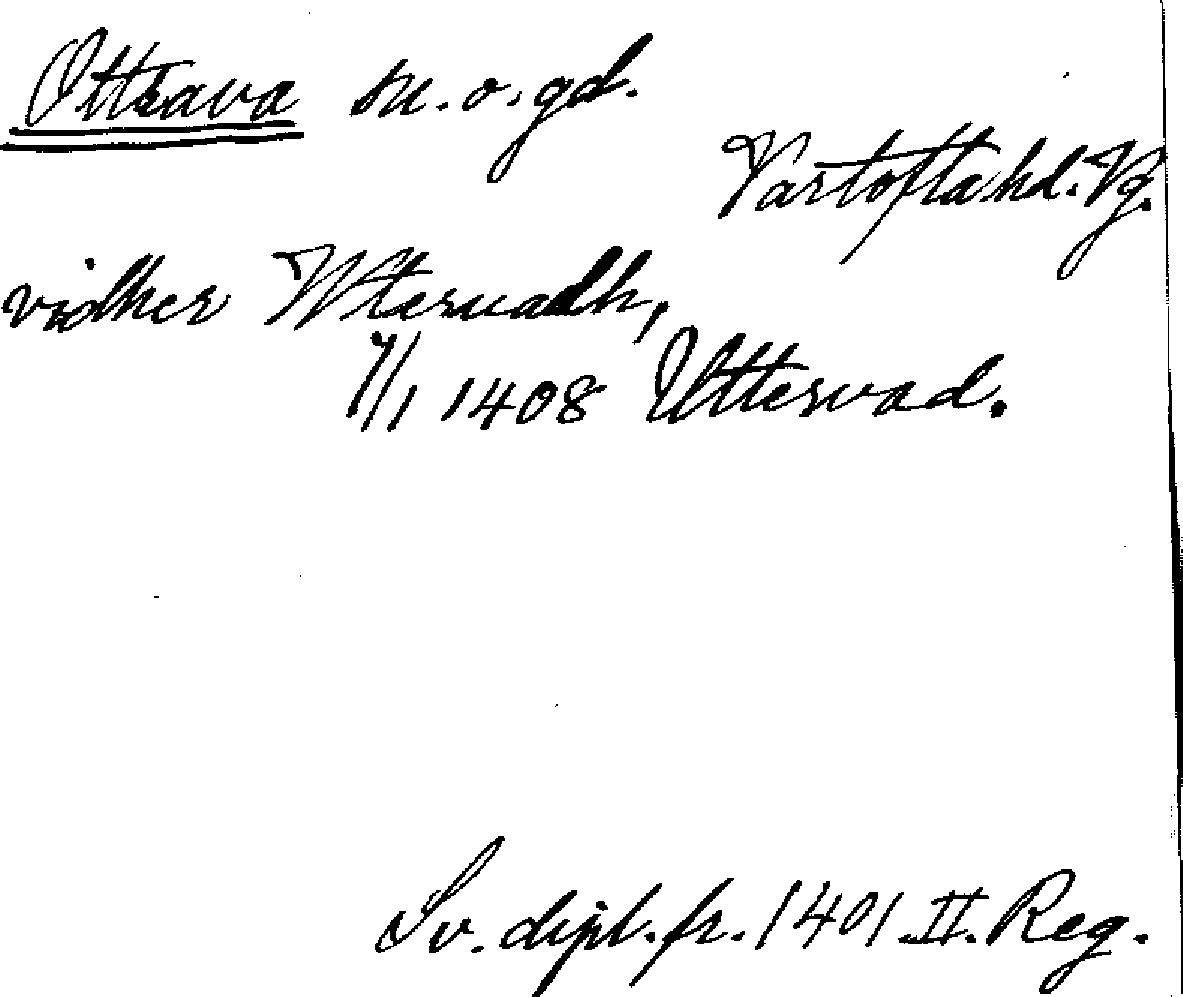 Ottrava sn. o. gd.
Vartofta hd. Vg.
vidher Wteruadh,
7/1 1408 Uttervad.
Sv. dipl. fr. 1401. II. Reg.